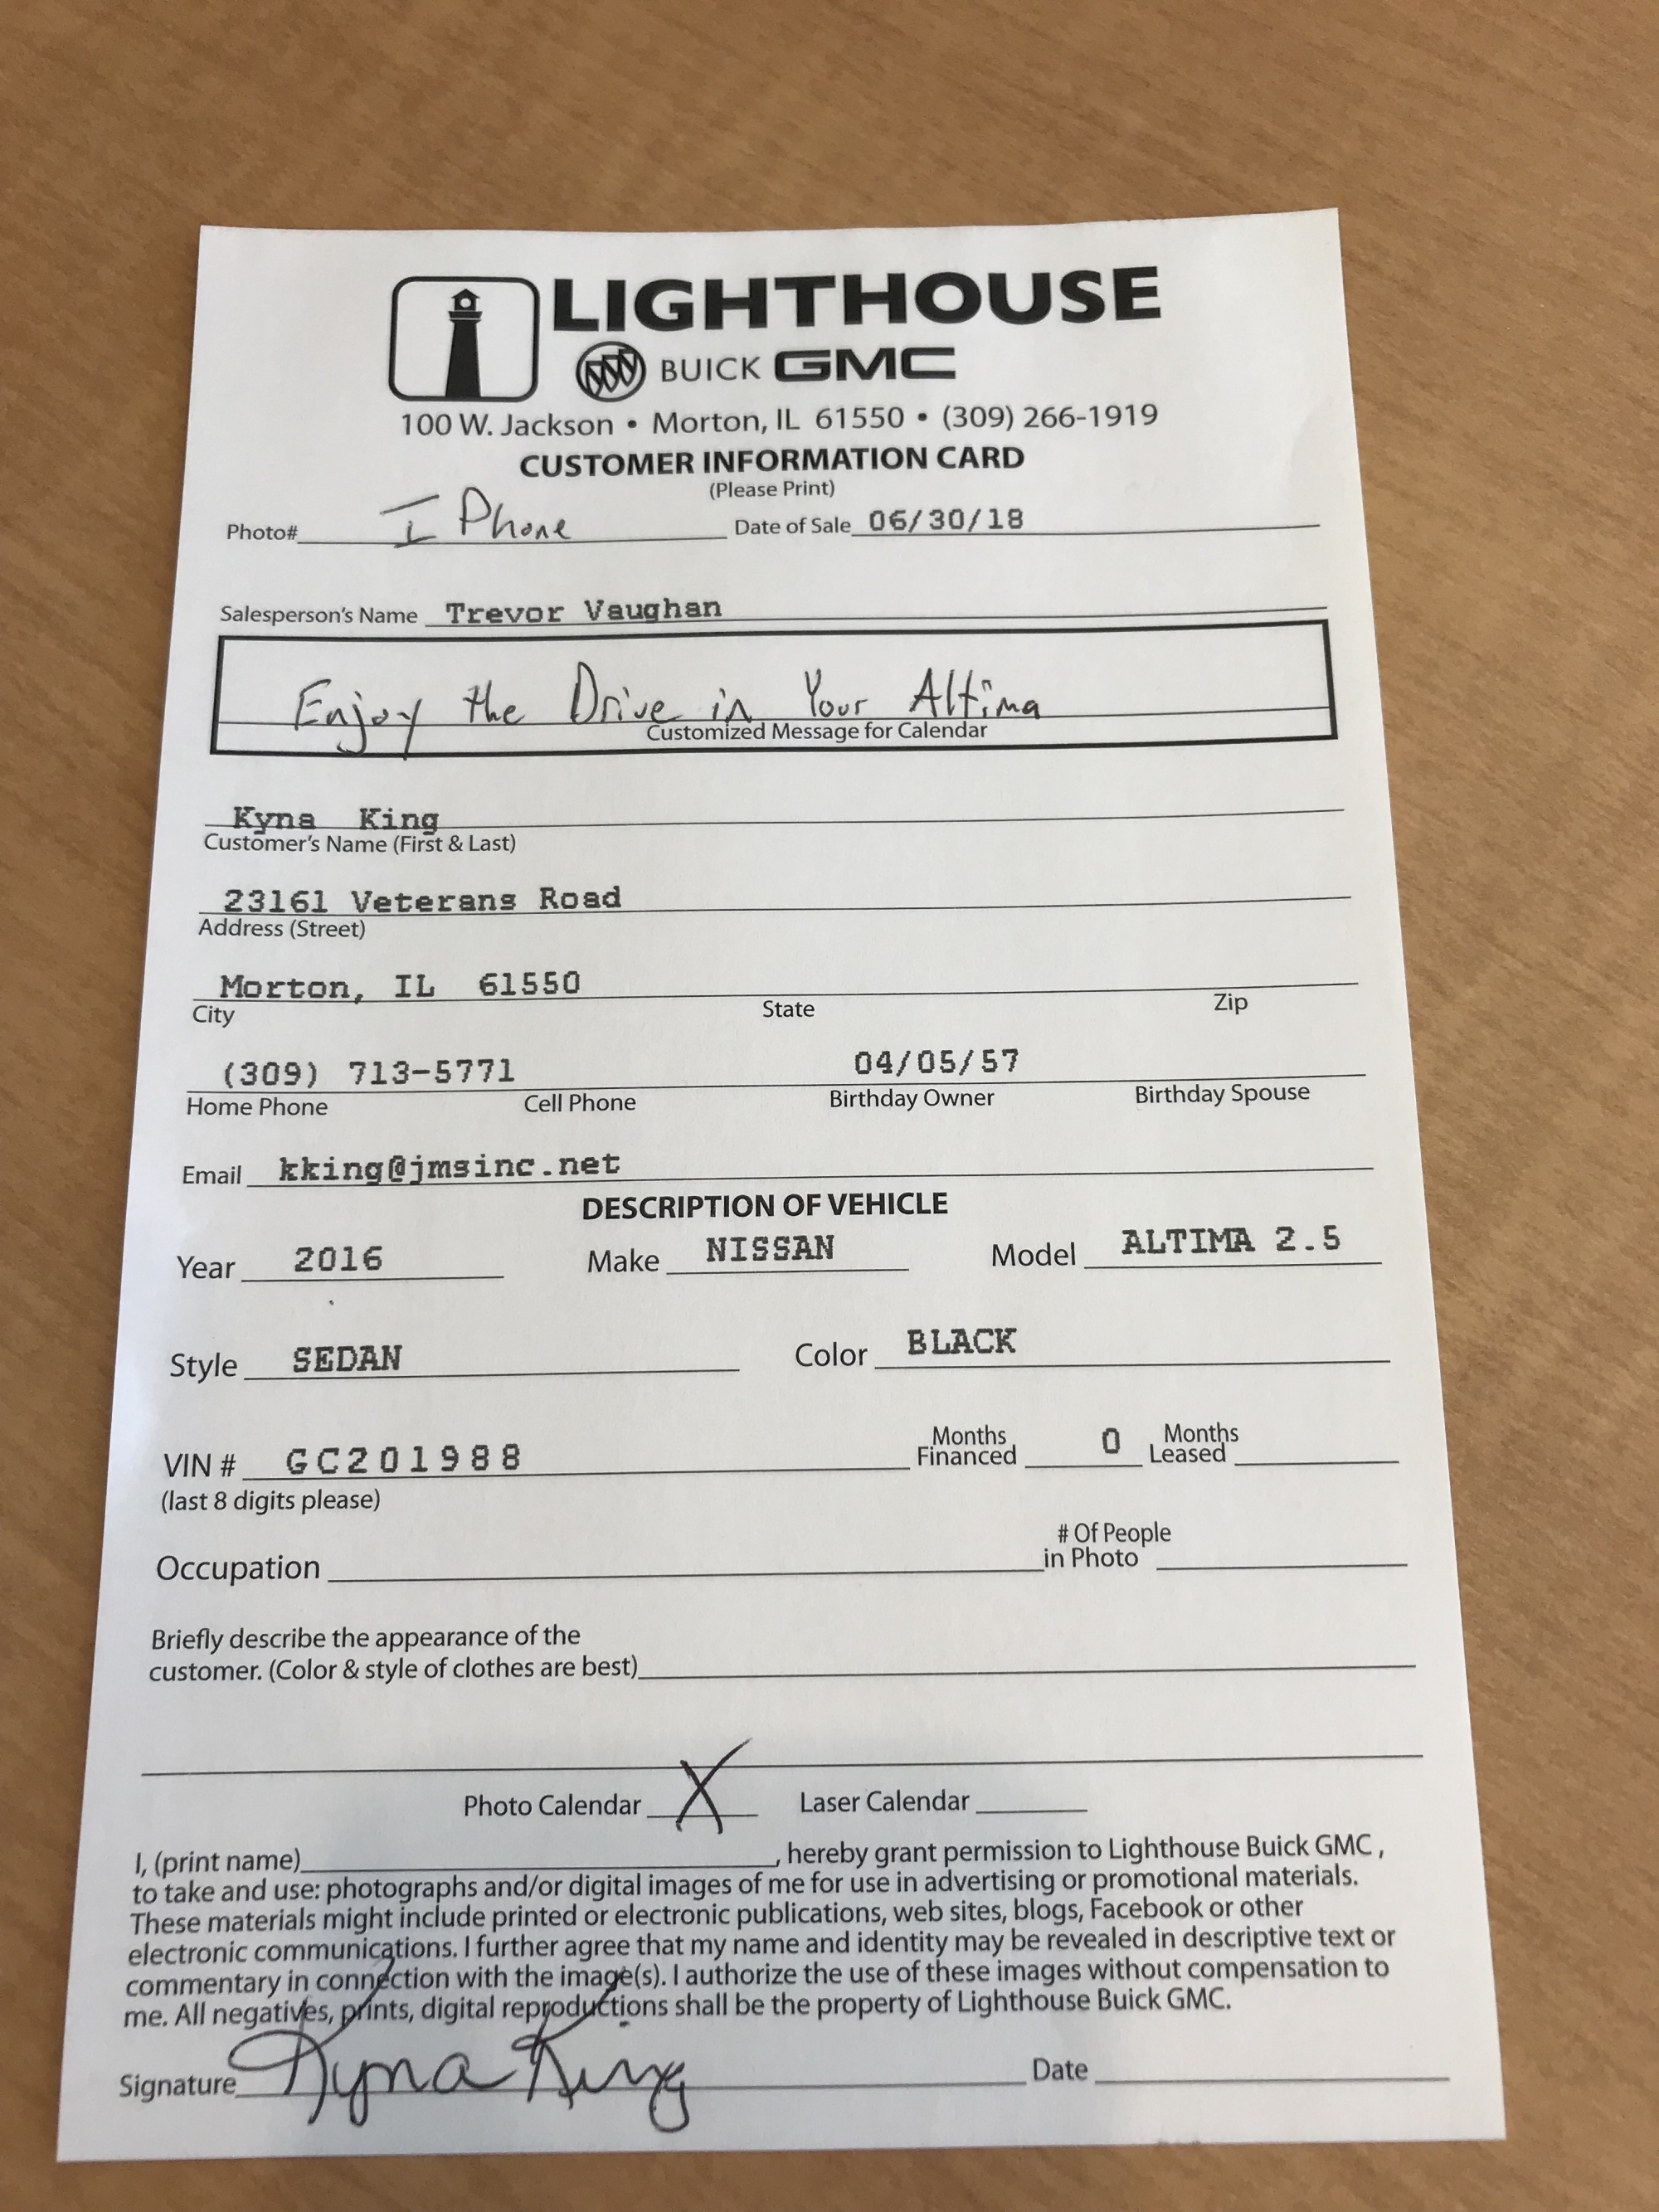 LIGHTHOUSE
BUICK GMC
100 W. Jackson • Morton, IL 61550 • (309) 266-1919
CUSTOMER INFORMATION CARD
(Please Print)
Photo# I Phone Date of Sale 06/30/18
Salesperson's Name Trevor Vaughan
Enjoy the Drive in Your Altima
Customized Message for Calendar
Kyna King
Customer's Name (First & Last)
23161 Veterans Road
Address (Street)
Morton, IL 61550
City State Zip
(309) 713-5771 04/05/57
Home Phone Cell Phone Birthday Owner Birthday Spouse
Email kking@jmsinc.net
DESCRIPTION OF VEHICLE
Year 2016 Make NISSAN Model ALTIMA 2.5
Style SEDAN Color BLACK
VIN # GC201988 Months Financed 0 Months Leased
(last 8 digits please)
Occupation # Of People in Photo
Briefly describe the appearance of the
customer. (Color & style of clothes are best)
Photo Calendar X Laser Calendar
I, (print name) , hereby grant permission to Lighthouse Buick GMC ,
to take and use: photographs and/or digital images of me for use in advertising or promotional materials.
These materials might include printed or electronic publications, web sites, blogs, Facebook or other
electronic communications. I further agree that my name and identity may be revealed in descriptive text or
commentary in connection with the image(s). I authorize the use of these images without compensation to
me. All negatives, prints, digital reproductions shall be the property of Lighthouse Buick GMC.
Signature Kyna King Date